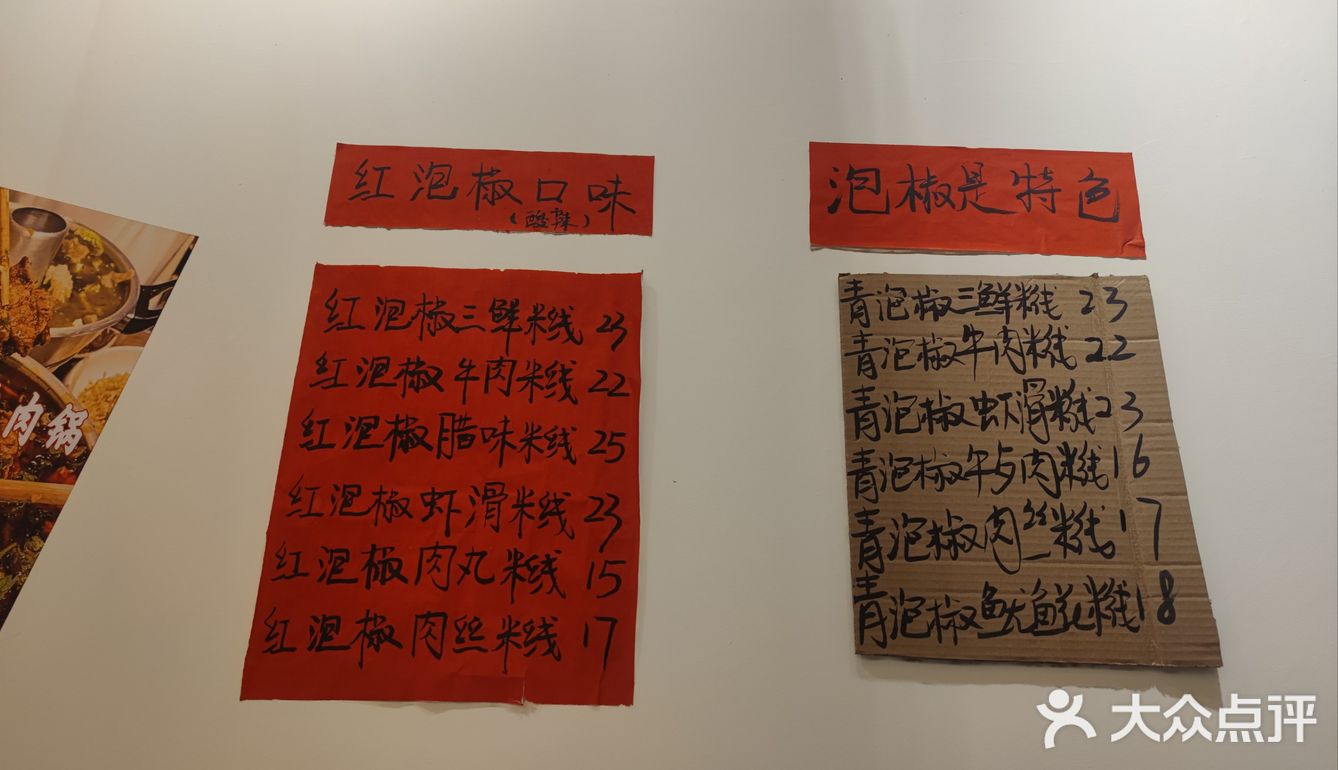 红泡椒口味
（酸辣）
红泡椒三鲜米线 23
红泡椒牛肉米线 22
红泡椒腊味米线 25
红泡椒虾滑米线 23
红泡椒肉丸米线 15
红泡椒肉丝米线 17
泡椒是特色
青泡椒三鲜米线 23
青泡椒牛肉米线 22
青泡椒虾滑米线 23
青泡椒午与肉米线 16
青泡椒肉丝米线 17
青泡椒鱿 米线 18
肉锅
大众点评